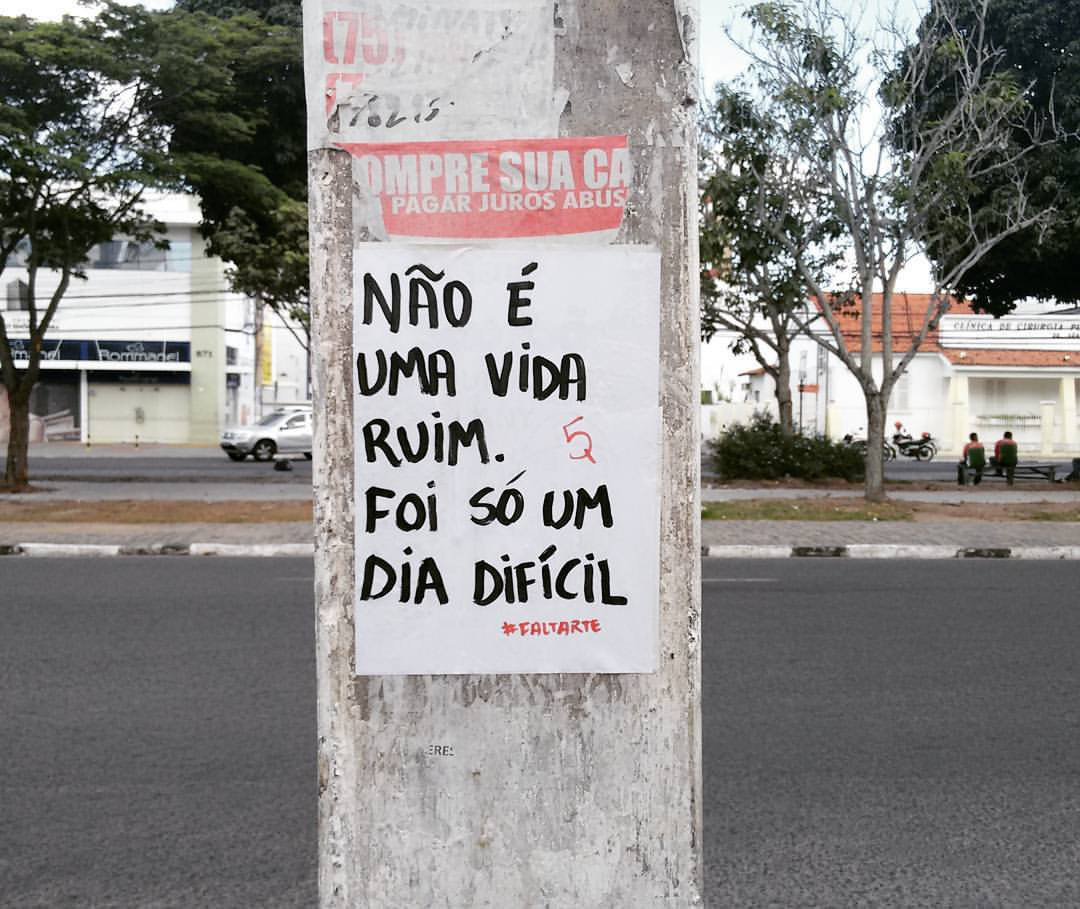 (75)
OMPRE SUA CA
PAGAR JUROS ABUS
NÃO É
UMA VIDA
RUIM. 5
FOI SÓ UM
DIA DIFÍCIL
#FALTARTE
Rommanel
871
CLÍNICA DE CIRURGIA